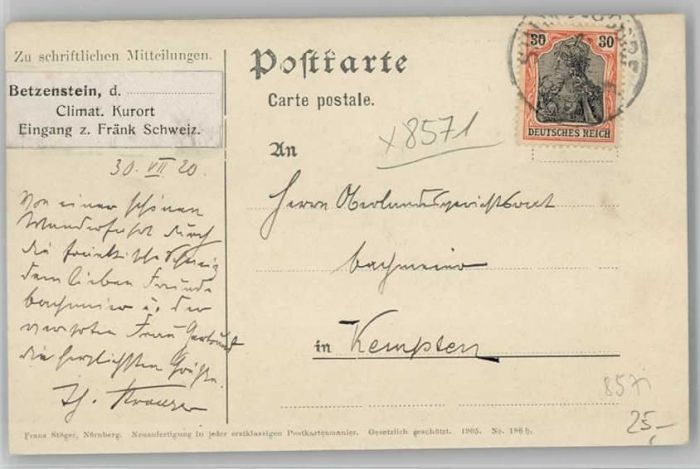 Zu schriftlichen Mitteilungen.
Betzenstein, d.
Climat. Kurort
Eingang z. Fränk Schweiz.
30. VII 20.
Von einer schönen
Wanderfahrt durch
die fränkische Schweiz
dem lieben Freunde
Bachmeier u. der
verehrten Frau Gertrund
die herzlichsten Grüße.
Th.
Postkarte
Carte postale.
x8571
An
Herrn Oberlandesgerichtsrat
Bachmeier
in Kempten
30 30
DEUTSCHES REICH
8571
25,-
Franz Stöger, Nürnberg. Neuanfertigung in jeder erstklassigen Postkartenmanier. Gesetzlich geschützt. 1905. No. 186